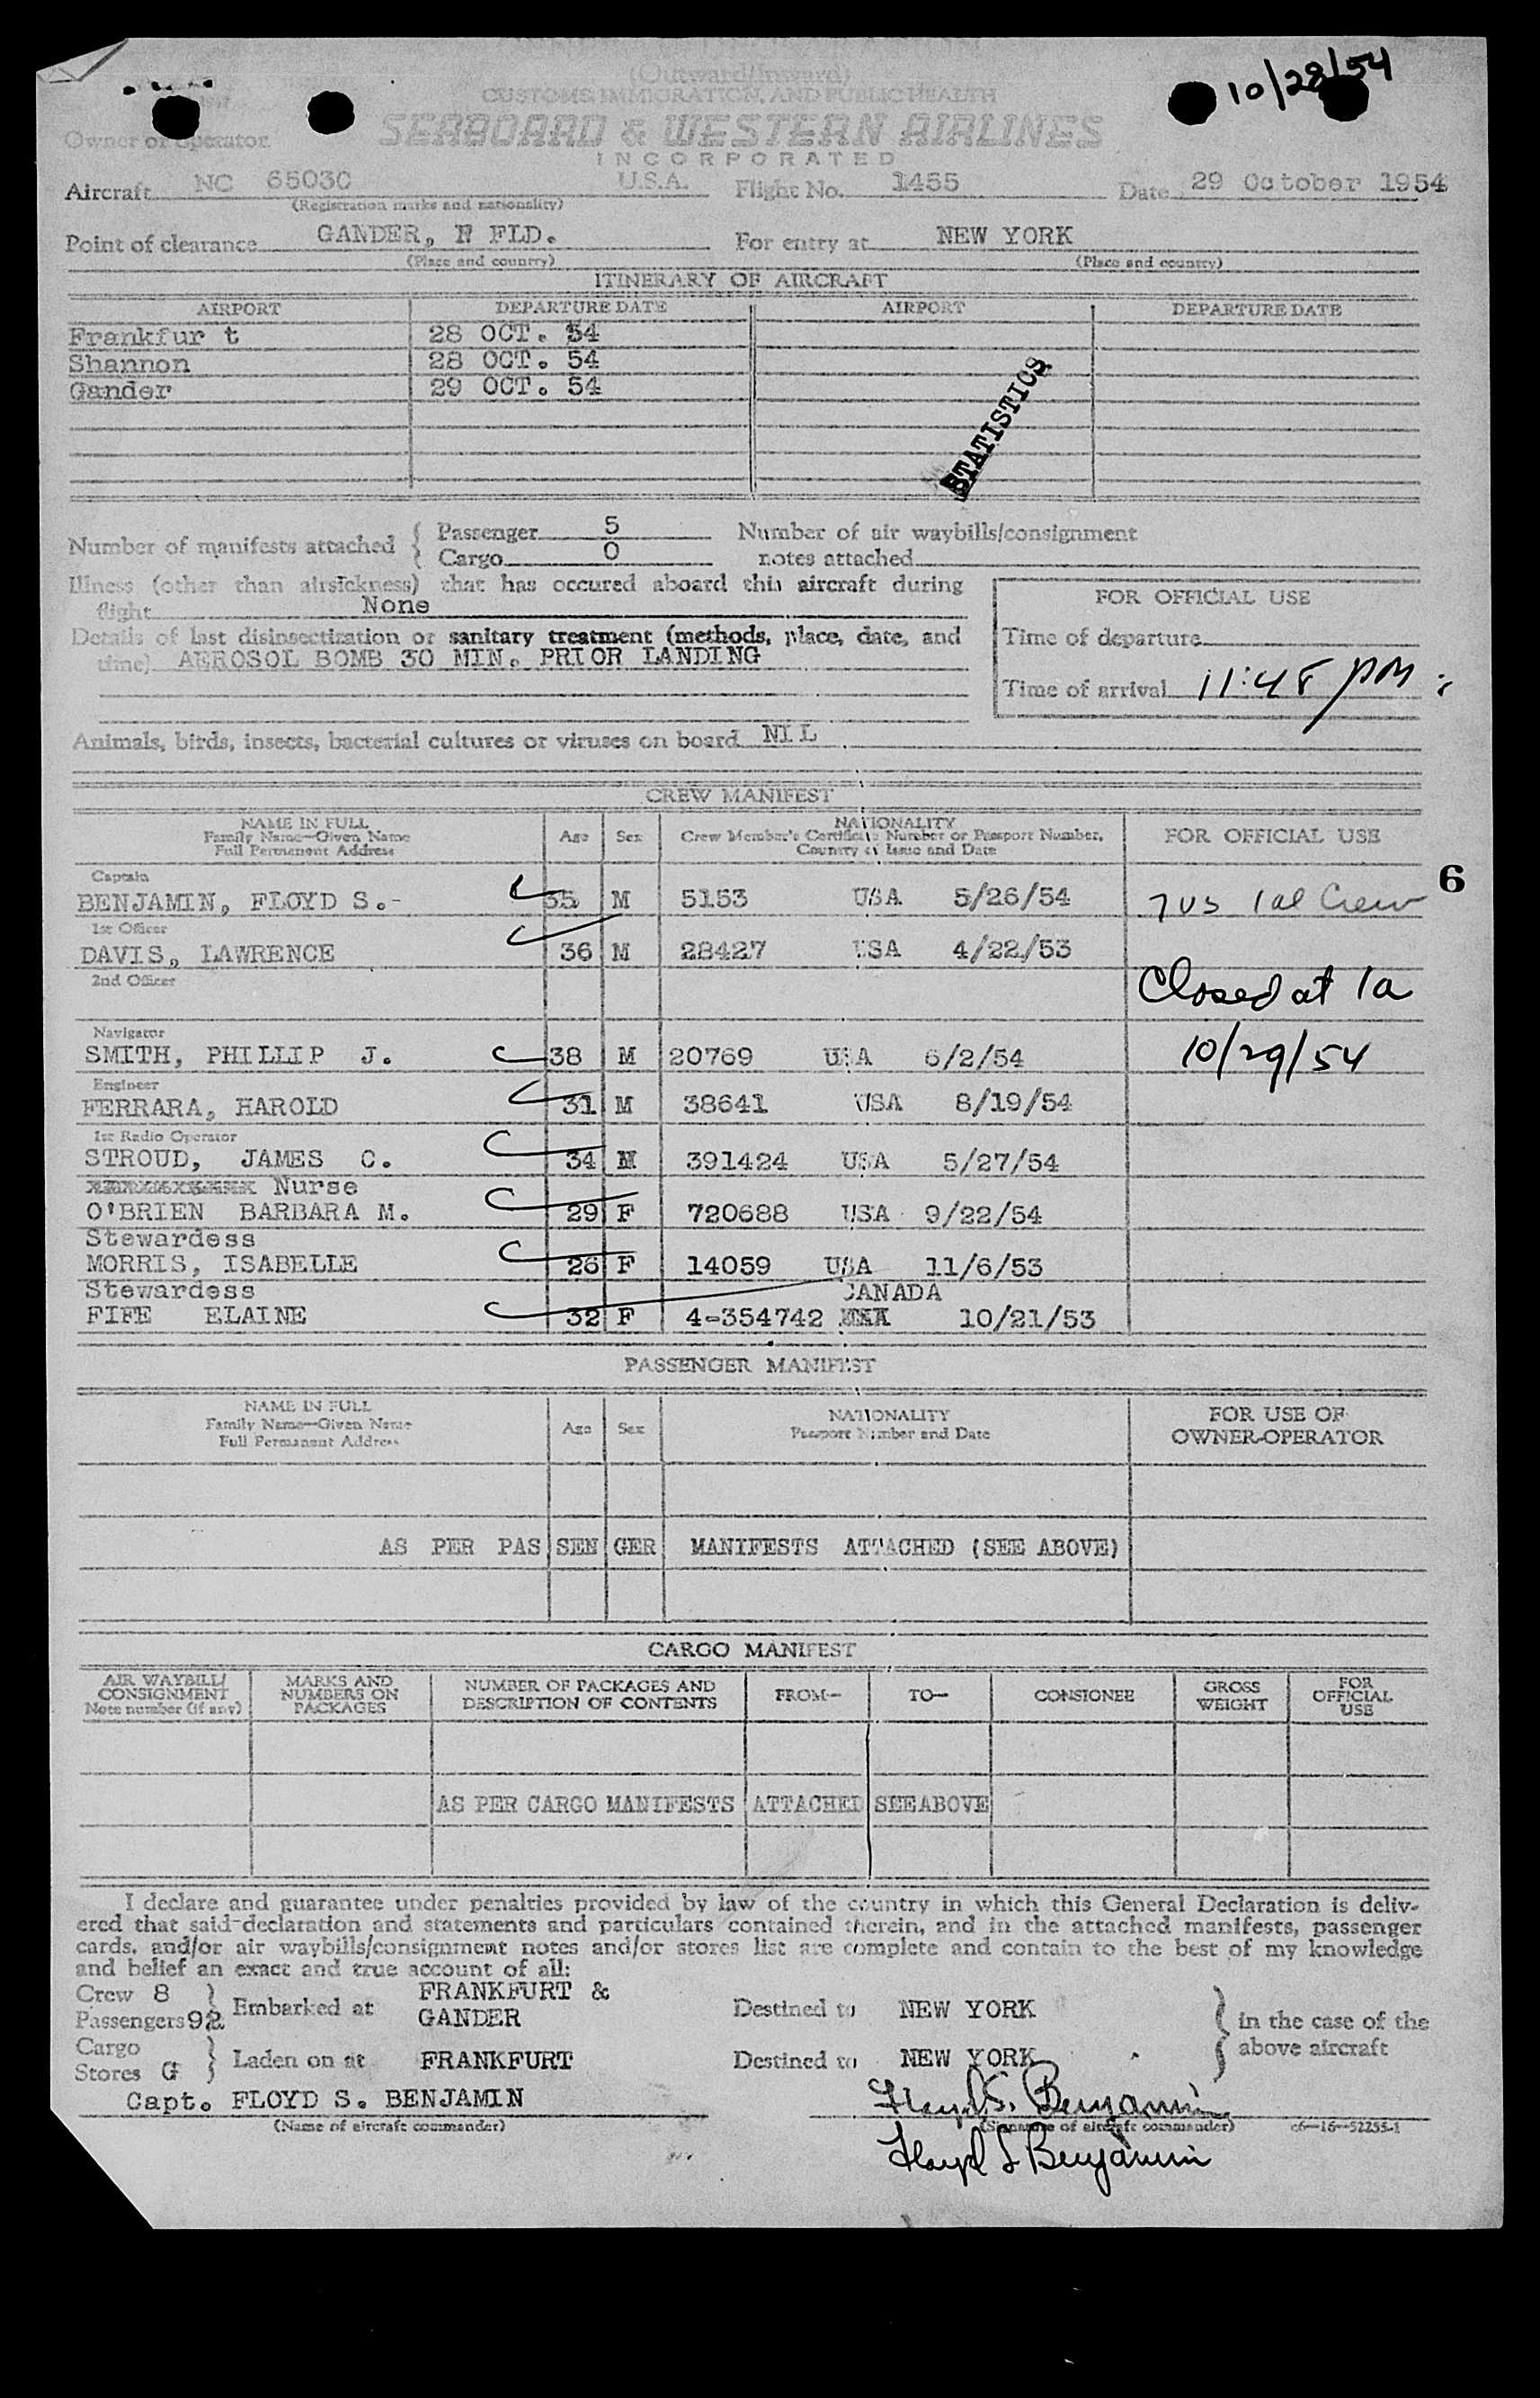 (Outward/Inward)
CUSTOMS, IMMIGRATION, AND PUBLIC HEALTH
10/28/54
Owner or Operator SEABOARD & WESTERN AIRLINES
INCORPORATED
Aircraft NC 6503C U.S.A. Flight No. 1455 Date 29 October 1954
(Registration marks and nationality)
Point of clearance GANDER, N FLD. For entry at NEW YORK
(Place and country) (Place and country)
ITINERARY OF AIRCRAFT
AIRPORT DEPARTURE DATE AIRPORT DEPARTURE DATE
Frankfur t 28 OCT. 54
Shannon 28 OCT. 54
Gander 29 OCT. 54
STATISTICS
Number of manifests attached { Passenger 5 Number of air waybills/consignment
Cargo 0 notes attached
Illness (other than airsickness) that has occured aboard this aircraft during
flight None
FOR OFFICIAL USE
Details of last disinsectization or sanitary treatment (methods, place, date, and
time) AEROSOL BOMB 30 MIN. PRIOR LANDING
Time of departure
Time of arrival 11:48 PM
Animals, birds, insects, bacterial cultures or viruses on board NIL
CREW MANIFEST
NAME IN FULL
Family Name—Given Name
Full Permanent Address
Age Sex
NATIONALITY
Crew Member's Certificate Number or Passport Number,
Country of Issue and Date
FOR OFFICIAL USE
6
Captain
BENJAMIN, FLOYD S.- 35 M 5153 USA 5/26/54 7 US 1 al Crew
1st Officer
DAVIS, LAWRENCE 36 M 28427 USA 4/22/53
2nd Officer
Closed at 1a
Navigator
SMITH, PHILLIP J. 38 M 20769 USA 6/2/54 10/29/54
Engineer
FERRARA, HAROLD 31 M 38641 USA 8/19/54
1st Radio Operator
STROUD, JAMES C. 34 M 391424 USA 5/27/54
Nurse
O'BRIEN BARBARA M. 29 F 720688 USA 9/22/54
Stewardess
MORRIS, ISABELLE 26 F 14059 USA 11/6/53
Stewardess CANADA
FIFE ELAINE 32 F 4-354742 10/21/53
PASSENGER MANIFEST
NAME IN FULL
Family Name—Given Name
Full Permanent Address
Age Sex
NATIONALITY
Passport Number and Date
FOR USE OF
OWNER-OPERATOR
AS PER PAS SEN GER MANIFESTS ATTACHED (SEE ABOVE)
CARGO MANIFEST
AIR WAYBILL/
CONSIGNMENT
Note number (if any)
MARKS AND
NUMBERS ON
PACKAGES
NUMBER OF PACKAGES AND
DESCRIPTION OF CONTENTS
FROM— TO— CONSIGNEE
GROSS
WEIGHT
FOR
OFFICIAL
USE
AS PER CARGO MANIFESTS ATTACHED SEE ABOVE
I declare and guarantee under penalties provided by law of the country in which this General Declaration is deliv-
ered that said declaration and statements and particulars contained therein, and in the attached manifests, passenger
cards, and/or air waybills/consignment notes and/or stores list are complete and contain to the best of my knowledge
and belief an exact and true account of all:
Crew 8 } Embarked at FRANKFURT & Destined to NEW YORK } in the case of the
Passengers 92 GANDER above aircraft
Cargo } Laden on at FRANKFURT Destined to NEW YORK
Stores G
Capt. FLOYD S. BENJAMIN Floyd S. Benjamin
(Name of aircraft commander) (Signature of aircraft commander) c6—16—52255-1
Floyd S Benjamin